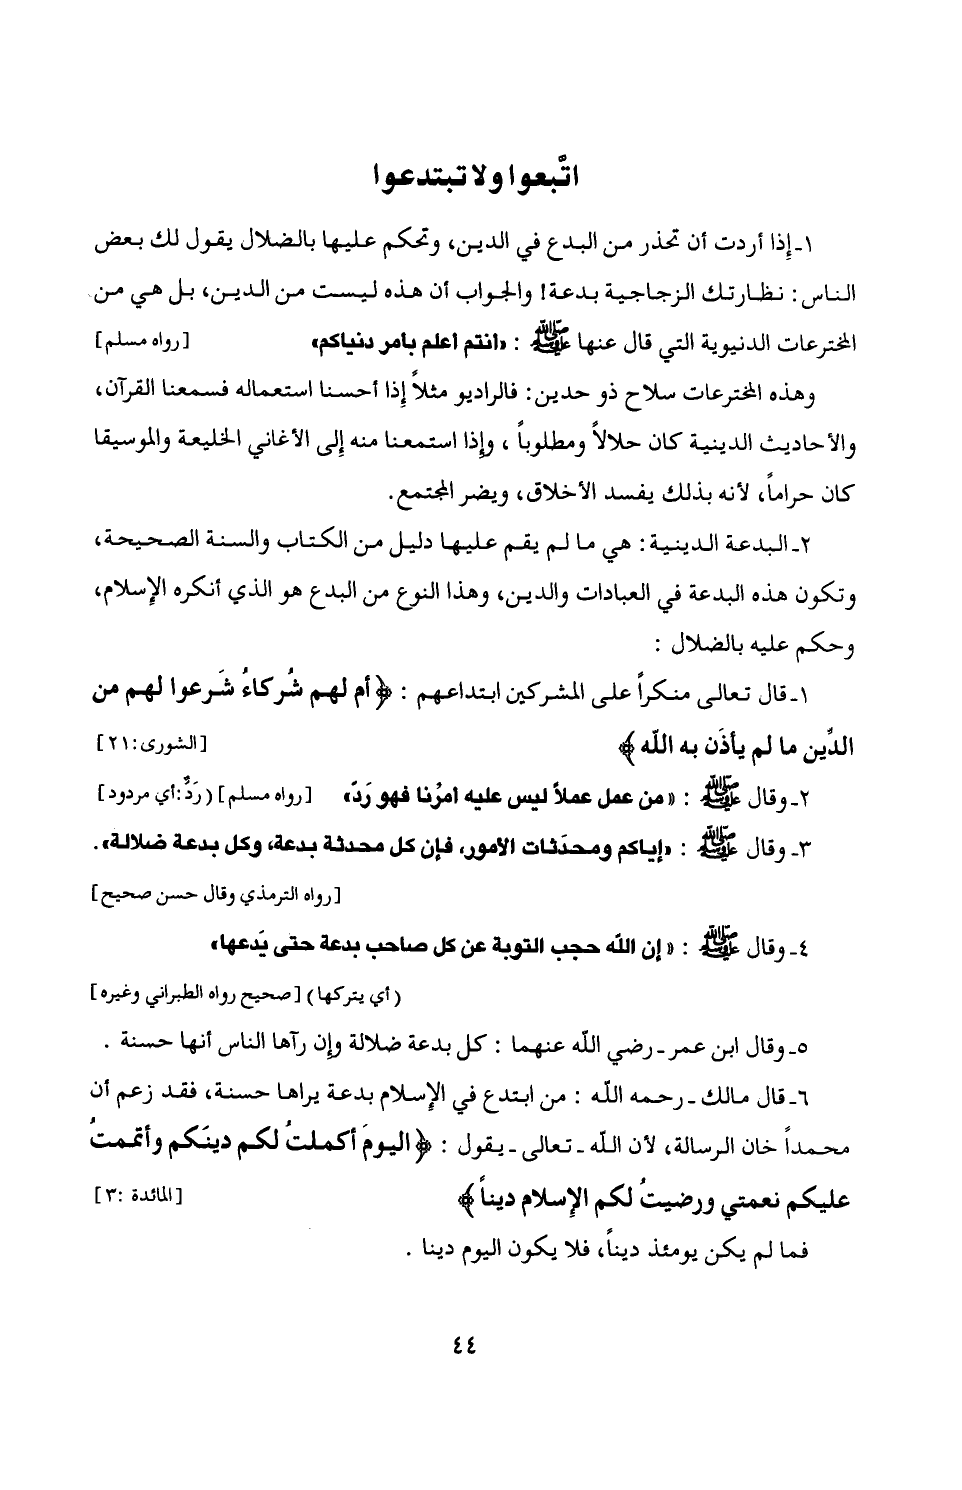 اتَّبعوا ولا تبتدعوا
١ـ إذا أردت أن تحذر من البدع في الدين، وتحكم عليها بالضلال يقول لك بعض
الناس : نظارتك الزجاجية بدعة! والجواب أن هذه ليست من الدين، بل هي من
المخترعات الدنيوية التي قال عنها ﷺ : «أنتم أعلم بأمر دنياكم» [رواه مسلم]
وهذه المخترعات سلاح ذو حدين : فالراديو مثلاً إذا أحسنا استعماله فسمعنا القرآن،
والأحاديث الدينية كان حلالاً ومطلوباً ، وإذا استمعنا منه إلى الأغاني الخليعة والموسيقا
كان حراماً، لأنه بذلك يفسد الأخلاق، ويضر المجتمع.
٢ـ البدعة الدينية : هي ما لم يقم عليها دليل من الكتاب والسنة الصحيحة،
وتكون هذه البدعة في العبادات والدين، وهذا النوع من البدع هو الذي أنكره الإسلام،
وحكم عليه بالضلال :
١ـ قال تعالى منكراً على المشركين ابتداعهم : ﴿أم لهم شُركاءُ شَرعوا لهم من
الدِّين ما لم يأذَن به اللّه﴾ [الشورى: ٢١]
٢ـ وقال ﷺ : «من عمل عملاً ليس عليه أمرُنا فهو رَدّ» [رواه مسلم] (رَدٌّ: أي مردود]
٣ـ وقال ﷺ : «إياكم ومحدَثات الأمور، فإن كل محدثة بدعة، وكل بدعة ضلالة».
[رواه الترمذي وقال حسن صحيح]
٤ـ وقال ﷺ : «إن اللّه حجب التوبة عن كل صاحب بدعة حتى يَدعها»
(أي يتركها) [صحيح رواه الطبراني وغيره]
٥ـ وقال ابن عمر ـ رضي اللّه عنهما : كل بدعة ضلالة وإن رآها الناس أنها حسنة .
٦ـ قال مالك ـ رحمه اللّه : من ابتدع في الإسلام بدعة يراها حسنة، فقد زعم أن
محمداً خان الرسالة، لأن اللّه ـ تعالى ـ يقول : ﴿اليومَ أكملتُ لكم دينَكم وأتممتُ
عليكم نعمتي ورضيتُ لكم الإسلام ديناً﴾ [المائدة :٣]
فما لم يكن يومئذ ديناً، فلا يكون اليوم دينا .
٤٤